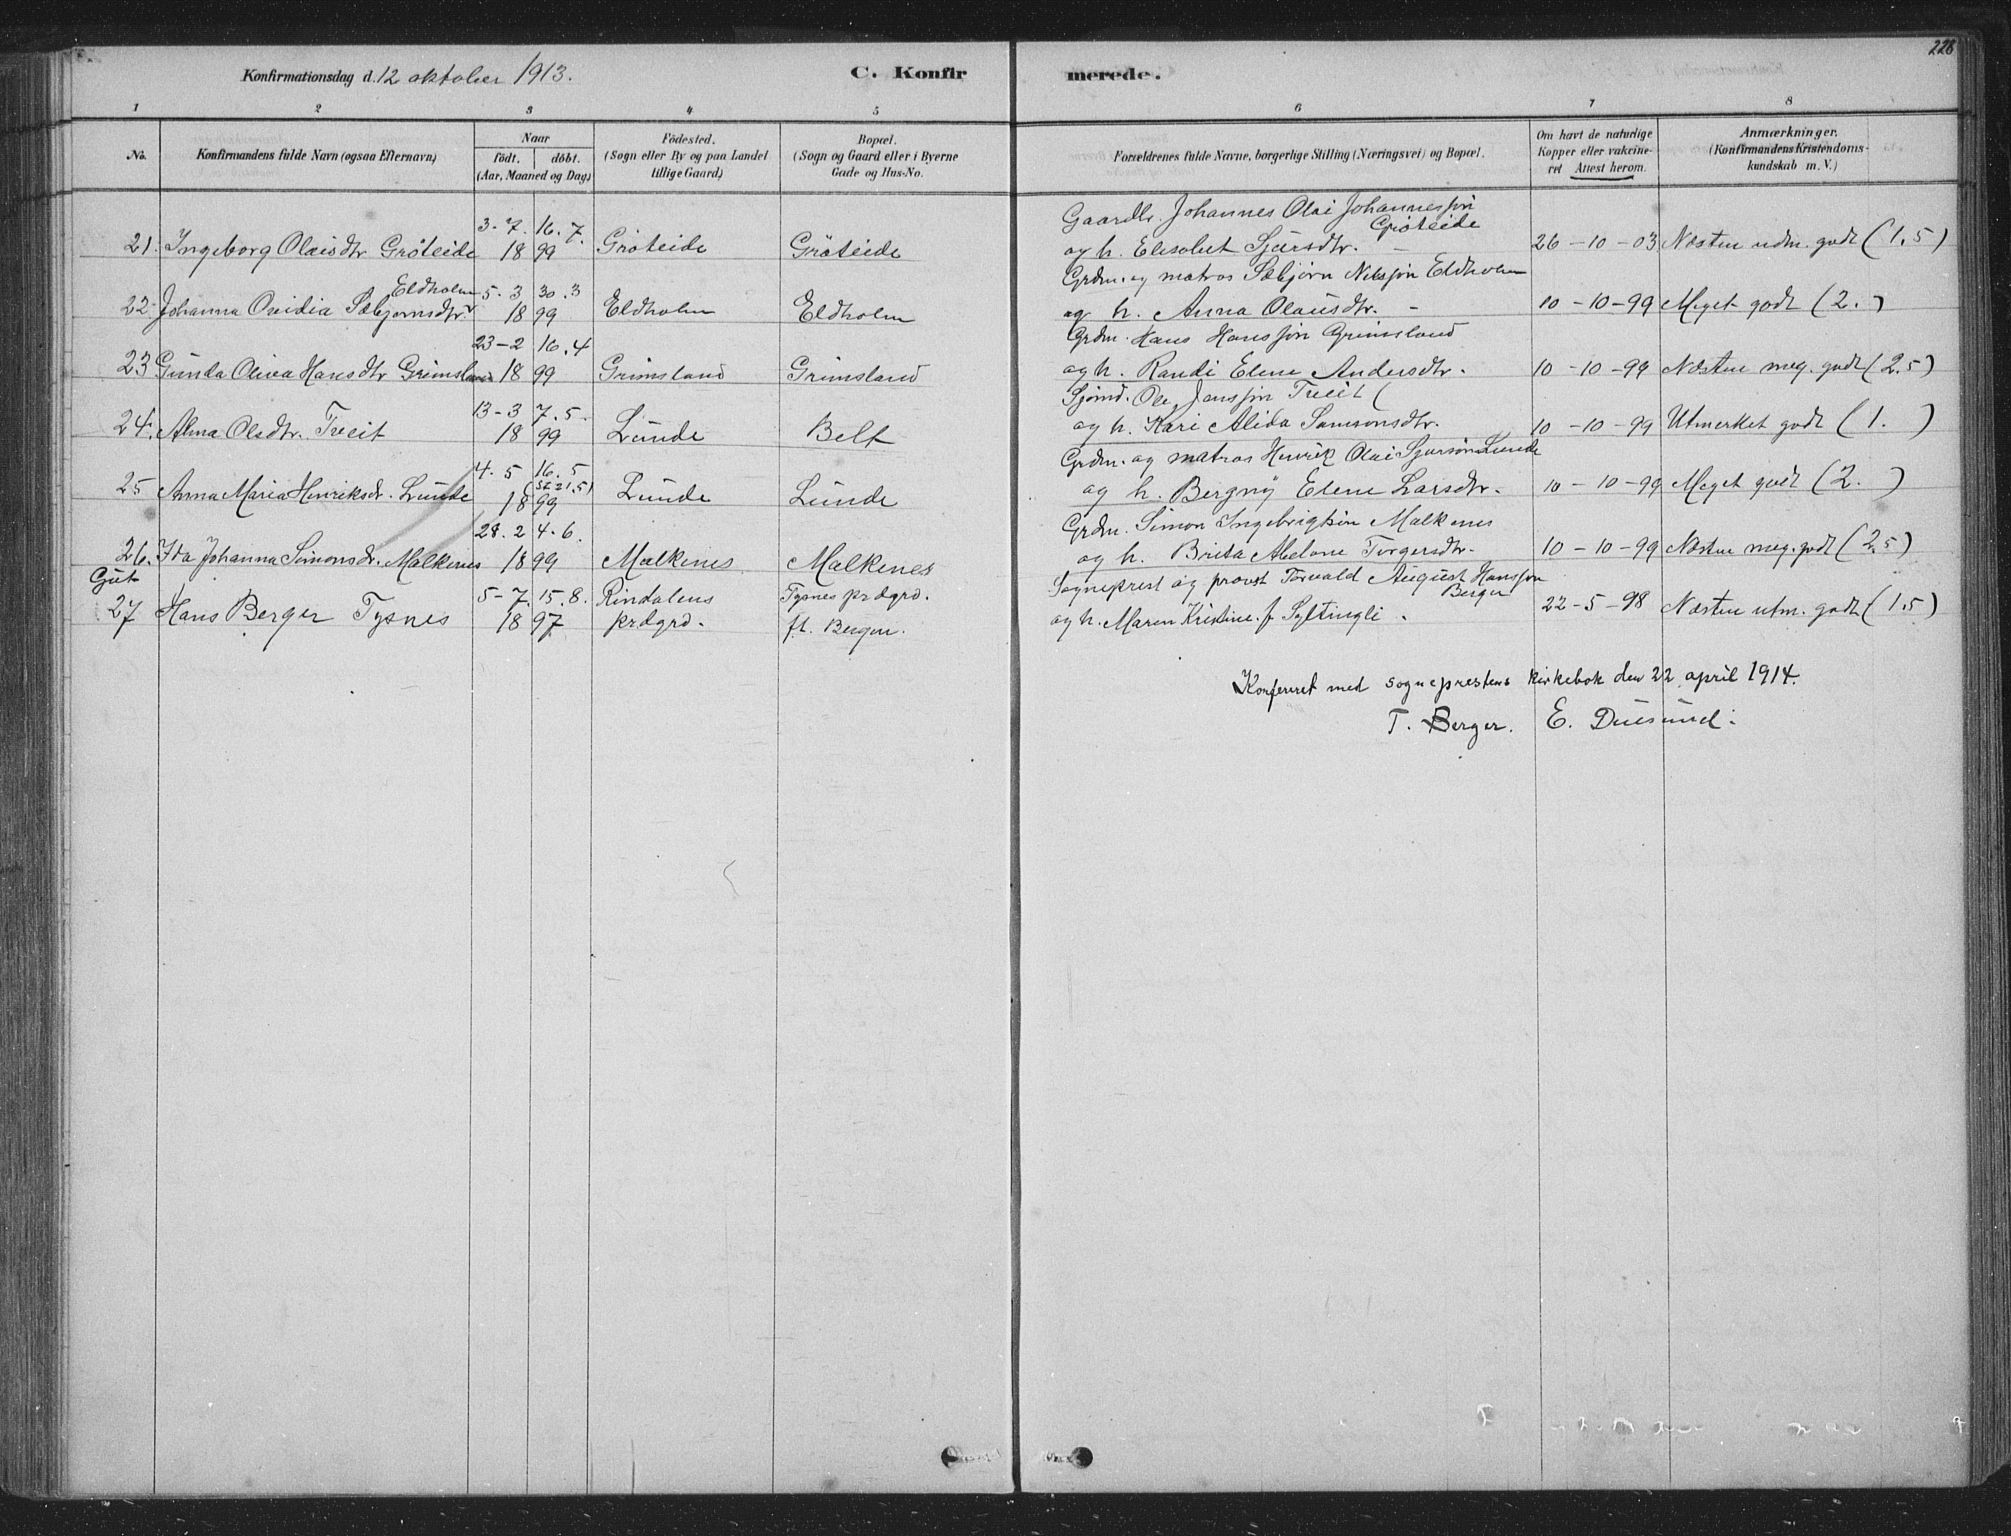 228
Konfirmationsdag d. 12 oktober 1913.
C. Konfirmerede.
1 2 3 4 5 6 7 8
No.
Konfirmandens fulde Navn (ogsaa Efternavn)
Naar
födt. döbt.
(Aar, Maaned og Dag)
Födested.
(Sogn eller By og paa Landet
tillige Gaard)
Bopæl.
(Sogn og Gaard eller i Byerne
Gade og Hus-No.
Forældrenes fulde Navne, borgerlige Stilling (Næringsvei) og Bopæl.
Om havt de naturlige
Kopper eller vakcine-
ret Attest herom.
Anmærkninger.
(Konfirmandens Kristendoms-
kundskab m. V.)
3-7. 16.7. Gaardbr. Johannes Olai Johannessøn
Gröteide
21. Ingeborg Olaisdtr Gröteide 18 99 Gröteide Gröteide og h. Elisabet Sjursdtr. - 26-10-03 Næsten udm. godt (1.5)
Eldholm 5.3 30.3 Grdm. og matros Sæbjørn Nilssøn Eldholm
22. Johanna Ovidia Sæbjørnsdtr. 18 99 Eldholm Eldholm og h. Anna Olausdtr. - 10-10-99 Meget godt (2.)
23-2 16.4 Grdm. Hans Hanssøn Grimsland
23 Gunda Olivia Hansdtr Grimsland 18 99 Grimsland Grimsland og h. Randi Elene Andersdtr. 10-10-99 Næsten meg. godt (2.5)
13-3 7.5. Sjømd. Ole Janssøn Treit (
24. Alma Olsdtr. Treit 18 99 Lunde Belt og h. Kari Alida Samsonsdtr. 10-10-99 Utmerket godt (1. )
4.5 16.5 Grdm. og matros Henrik Olai Sjursøn Lunde
(st 21.5)
25 Anna Maria Henriksdr. Lunde 18 99 Lunde Lunde og h. Bergny Elene Larsdtr. 10-10-99 Meget godt (2. )
28.2 4.6. Grdm. Simon Ingebrigtsøn Malkenes
26. Ida Johanna Simonsdr. Malkenes 18 99 Malkenes Malkenes og h. Brita Abelone Torgersdtr. 10-10-99 Næsten meg. godt (2.5)
Gut 5-7. 15.8. Rindalens Tysnes prdgrd. Sogneprest og provst Torvald August Hanssøn
Berger
27 Hans Berger Tysnes 18 97 prdgrd. ft. Bergen. og h. Maren Kristine f. 22-5-98 Næsten utm. godt (1.5)
Konfereret med sogneprestens kirkebok den 22 april 1914.
T. Berger. E. Duesund.